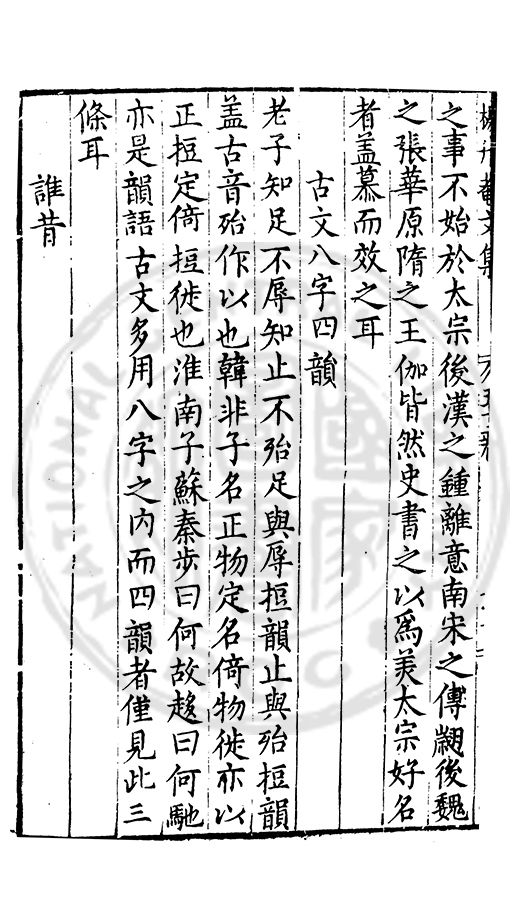 之事不始於太宗後漢之鍾離意南宋之傅翽後魏
之張華原隋之王伽皆然史書之以爲美太宗好名
者盖慕而效之耳
古文八字四韻
老子知足不辱知止不殆足與辱拒韻止與殆拒韻
盖古音殆作以也韓非子名正物定名倚物徙亦以
正拒定倚拒徙也淮南子蘇秦歩曰何故趍曰何馳
亦是韻語古文多用八字之内而四韻者僅見此三
條耳
誰昔